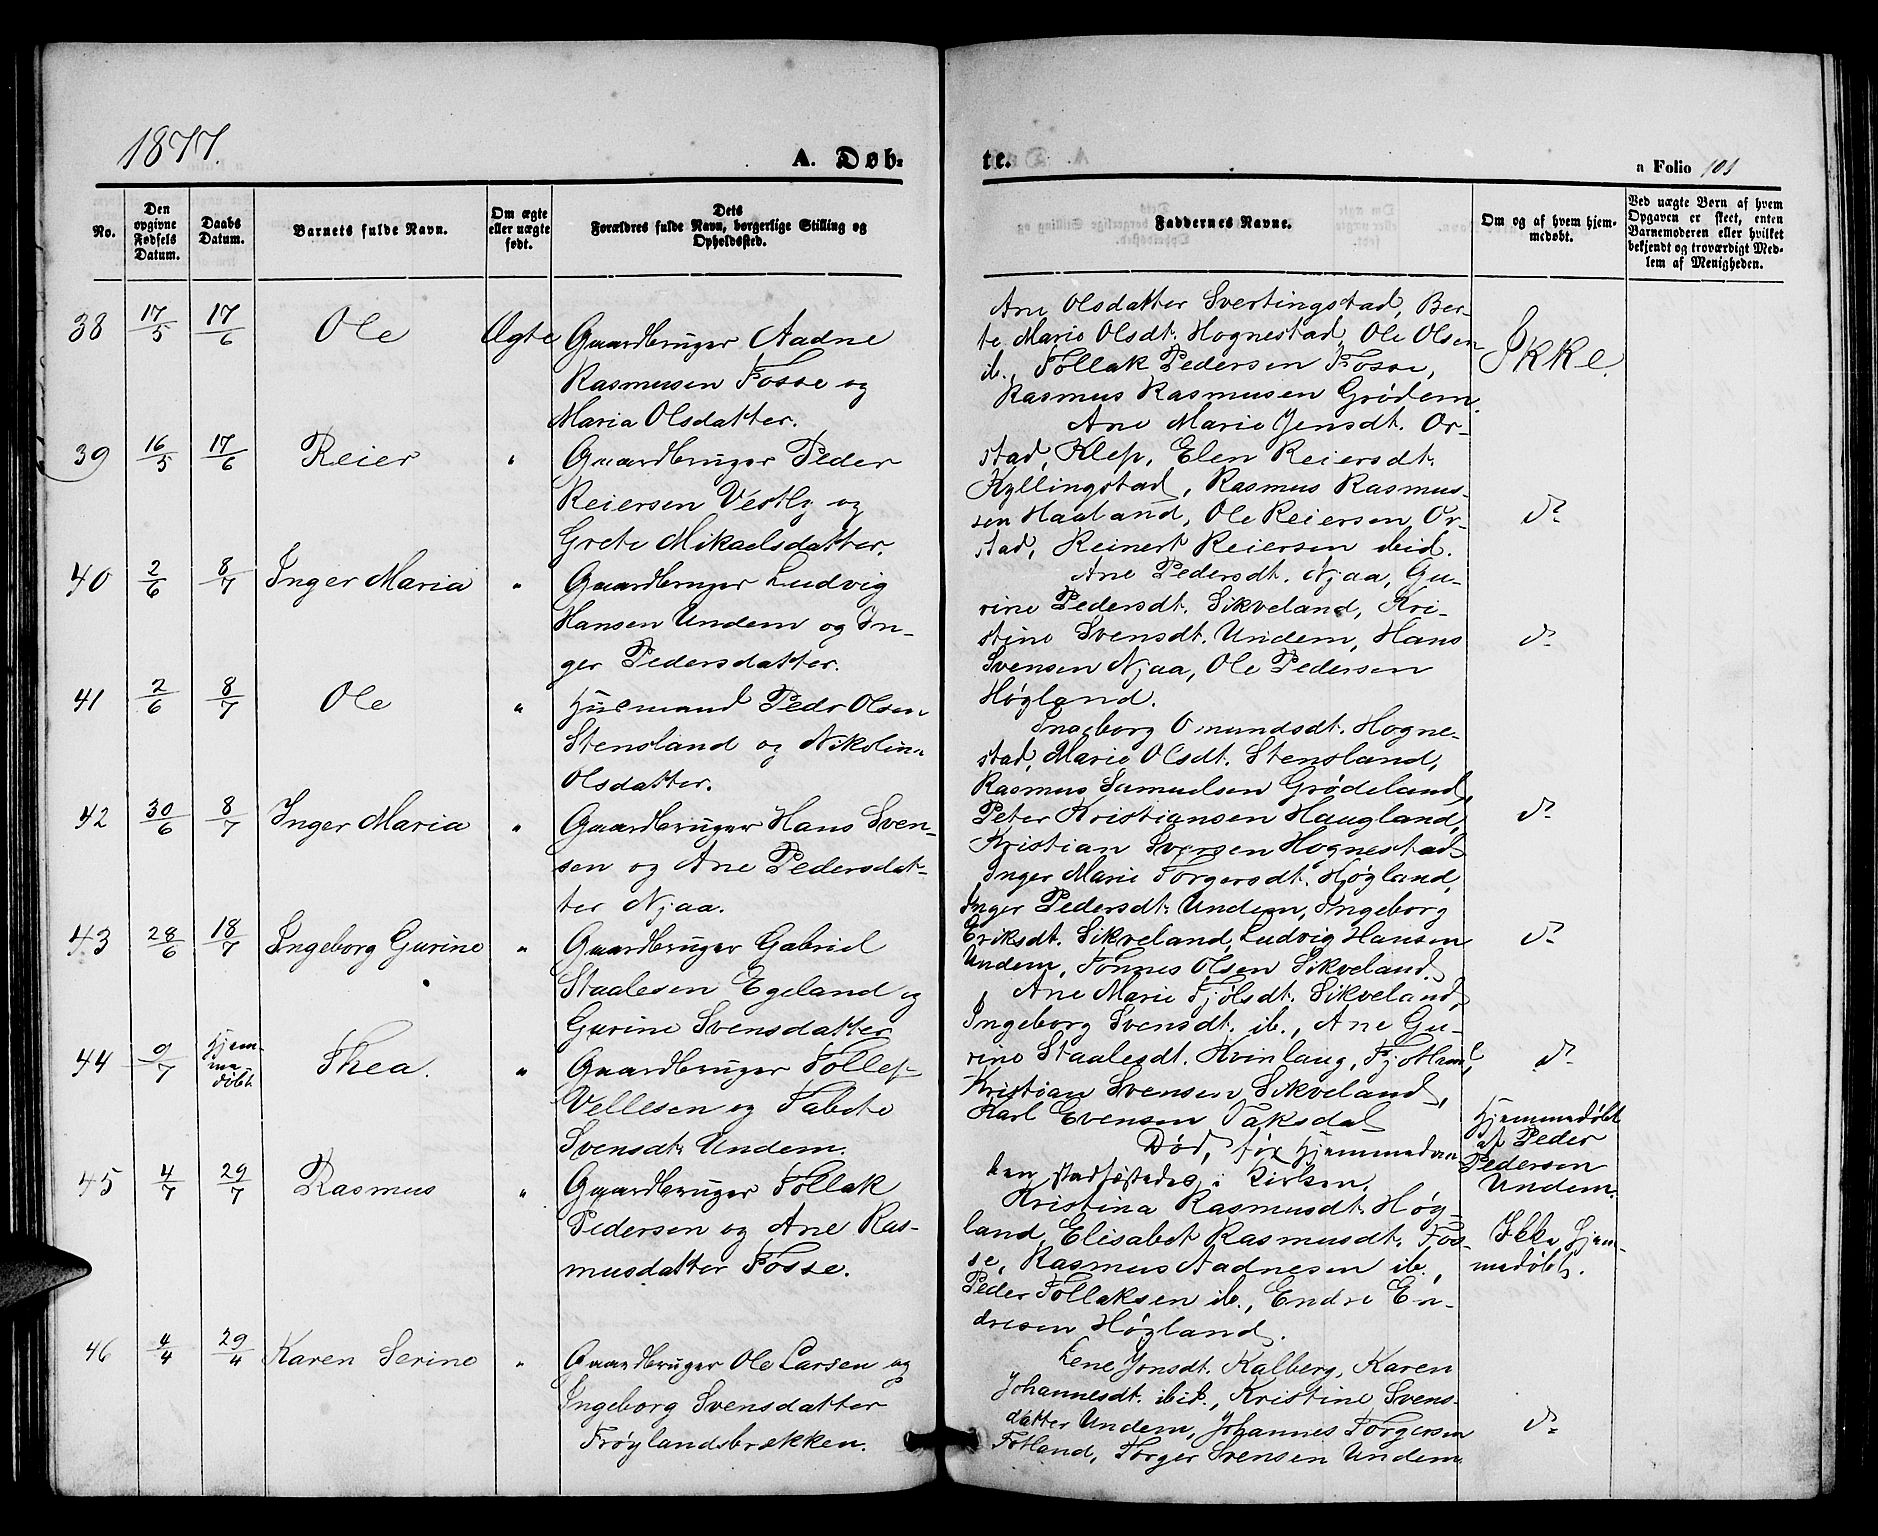 1877.
A. Døb-
te.
a Folio 101
No.
Den
opgivne
Fødsels
Datum.
Daabs
Datum.
Barnets fulde Navn.
Om ægte
eller uægte
født.
Dets
Forældres fulde Navn, borgerlige Stilling og
Opholdssted.
Faddernes Navne.
Om og af hvem hjem-
medøbt.
Ved uægte Børn af hvem
Opgaven er skeet, enten
Barnemoderen eller hvilket
bekjendt og troværdigt Med-
lem af Menigheden.
38 17/5 17/6 Ole Ægte Gaardbruger Aadne
Rasmusen Fosse og
Maria Olsdatter.
Ane Olsdatter Svertingstad, Ber-
te Marie Olsdt. Hognestad, Ole Olsen
ib., Tollak Pedersen Fosse,
Rasmus Rasmusen Grødem.
Ikke.
39 16/5 17/6 Reier " Gaardbruger Peder
Reiersen Vestly og
Grete Mikaelsdatter.
Ane Marie Jensdt. Or-
stad, Klep, Elen Reiersdt.
Kyllingstad, Rasmus Rasmus-
sen Haaland, Ole Reiersen Or-
stad, Reinert Reiersen ibid.
do
40 2/6 8/7 Inger Maria " Gaardbruger Ludvig
Hansen Undem og In-
ger Pedersdatter.
Ane Pedersdt. Njaa, Gu-
rine Pedersdt. Sikveland, Kri-
stine Svensdt. Undem, Hans
Svensen Njaa, Ole Pedersen
Høgland.
do
41 2/6 8/7 Ole " Husmand Peder Olsen
Stensland og Nikoline
Olsdatter.
Ingeborg Omundsdt. Hogne-
stad, Marie Olsdt. Stensland,
Rasmus Samuelsen Grødeland,
Peter Kristiansen Haugland,
Kristian Iversen Hognestad
do
42 30/6 8/7 Inger Maria " Gaardbruger Hans Sven-
sen og Ane Pedersdat-
ter Njaa.
Inger Marie Torgersdt. Høgland,
Inger Pedersdt. Undem, Ingeborg
Eriksdt. Sikveland, Ludvig Hansen
Undem, Tønnes Olsen Sikveland.
do
43 28/6 18/7 Ingeborg Gurine " Gaardbruger Gabriel
Staalesen Egeland og
Gurine Svensdatter
Ane Marie Fjølsdt. Sikveland,
Ingeborg Svensdt. ib., Ane Gu-
rine Staalesdt. Kvinlaug, Fjotland,
Kristian Svensen Sikveland,
Karl Evensen Taksdal
do
44 9/7 Hjem-
me
døbt Thea. " Gaardbruger Tollef
Vellesen og Tabete
Svensdt. Undem.
Død, før Hjemmedaa-
ben stadfæstedes i Kirken.
Hjemmedøbt
af Peder
Pedersen
Undem.
45 4/7 29/7 Rasmus " Gaardbruger Tollak
Pedersen og Ane Ras-
musdatter Fosse.
Kristina Rasmusdt. Høg-
land, Elisabet Rasmusdt. Fos-
se, Rasmus Aadnesen ib.,
Peder Tollaksen ib., Endre En-
dresen Høgland.
Ikke hjem-
medøbt.
46 4/4 29/4 Karen Serine " Gaardbruger Ole Larsen og
Ingeborg Svensdatter
Frøylandsbrækken.
Lene Jonsdt. Kalberg, Karen
Johannesdt. ibid., Kristine Svens-
datter Undem, Johannes Torgersen
Fotland, Torger Svensen Undem.
do